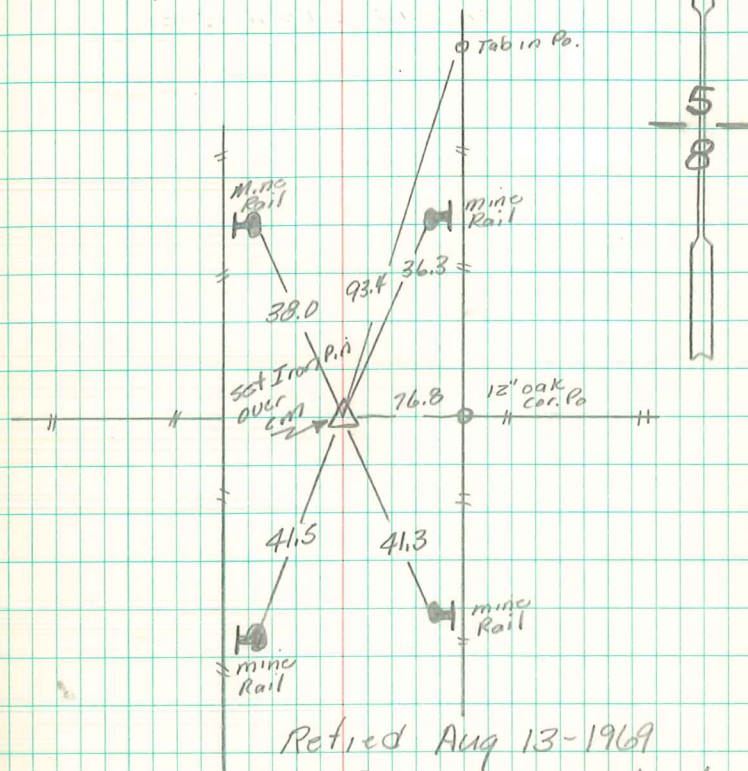 Tab in Po.
5
8
Mine
Rail
mine
Rail
36.3
93.4
38.0
Set Iron Pin
over
cm
76.8
12" oak
cor. Po
41.5
41.3
mine
Rail
mine
Rail
Retied Aug 13-1969